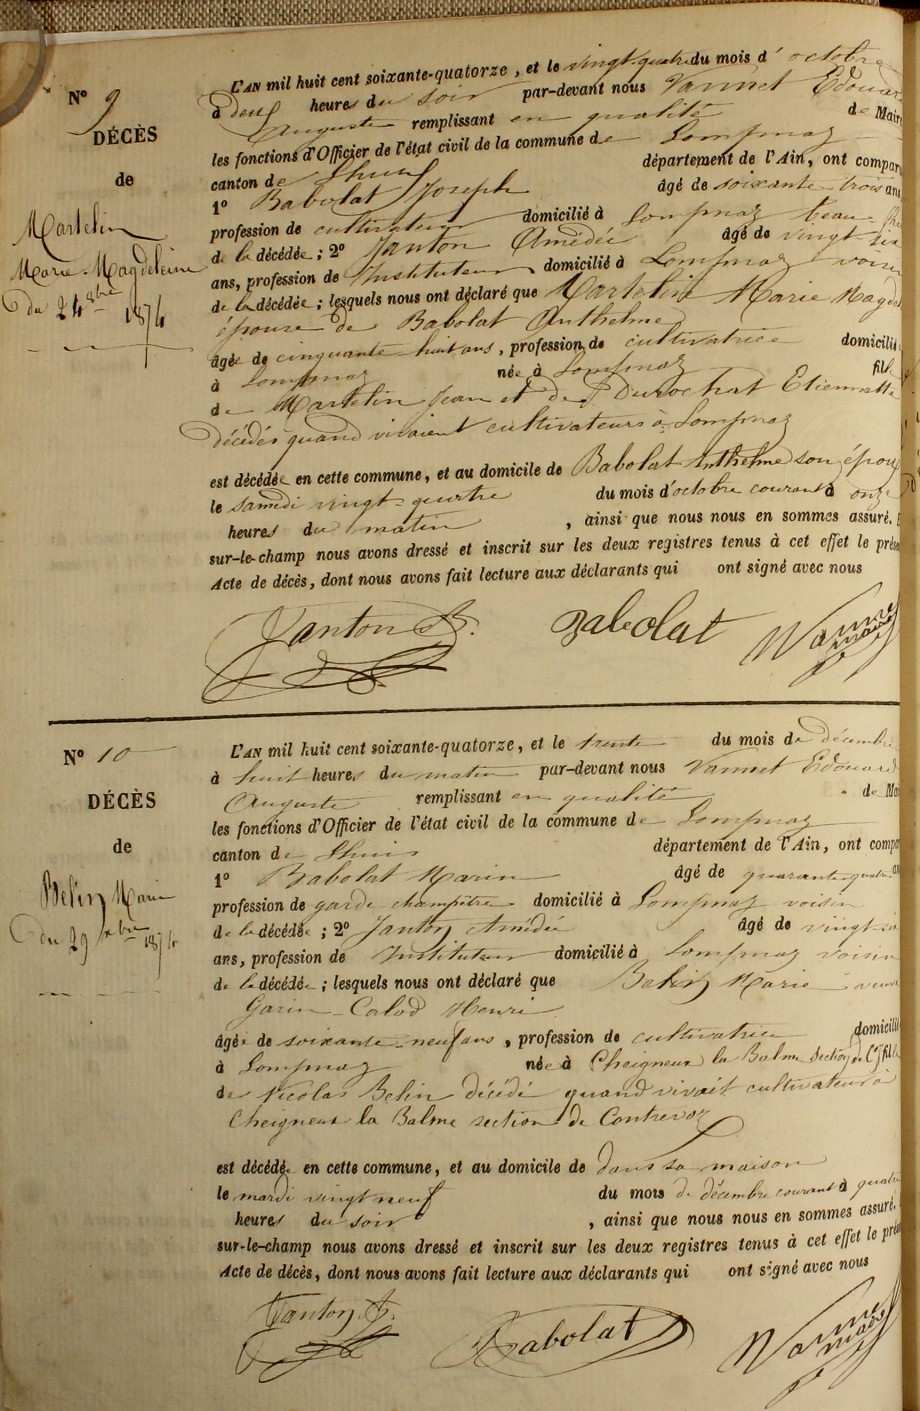 N° 9
DÉCÈS
de
Martelin
Marie Magdeleine
du 24 8bre 1874
L'AN mil huit cent soixante-quatorze, et le vingt-quatre du mois d'octobre
à deux heures du soir par-devant nous Vannet Edouard
Auguste remplissant en qualité de Maire
les fonctions d'Officier de l'état civil de la commune de Lompnaz
canton de Lhuis département de l'Ain, ont comparu
1° Babolat Joseph âgé de soixante trois ans
profession de cultivateur domicilié à Lompnaz beau-
de la décédée ; 2° Janton Amédée âgé de vingt six
ans, profession de Instituteur domicilié à Lompnaz voisin
de la décédée ; lesquels nous ont déclaré que Martelin Marie Magd
épouse de Babolat Anthelme
âgée de cinquante-huit ans, profession de cultivatrice domicilié
à Lompnaz née à Lompnaz fille
de Martelin Jean et de Durochat Etiennette
décédés quand vivaient cultivateurs à Lompnaz
est décédée en cette commune, et au domicile de Babolat Anthelme son époux
le samedi vingt-quatre du mois d'octobre courant à onze
heures du matin , ainsi que nous nous en sommes assuré. E
sur-le-champ nous avons dressé et inscrit sur les deux registres tenus à cet effet le prése
Acte de décès, dont nous avons fait lecture aux déclarants qui ont signé avec nous
Janton A. Babolat Vannet
maire
N° 10
DÉCÈS
de
Belin Marie
du 29 xbre 1874
L'AN mil huit cent soixante-quatorze, et le trente du mois de décembre
à huit heures du matin par-devant nous Vannet Edouard
Auguste remplissant en qualité de Mai
les fonctions d'Officier de l'état civil de la commune de Lompnaz
canton de Lhuis département de l'Ain, ont compa
1° Babolat Marin âgé de quarante-quatre an
profession de garde champêtre domicilié à Lompnaz voisin
de la décédée ; 2° Janton Amédée âgé de vingt-six
ans, profession de Instituteur domicilié à Lompnaz voisin
de la décédée ; lesquels nous ont déclaré que Belin Marie veuve
Garin-Calod Henri
âgée de soixante-neuf ans, profession de cultivatrice domicilié
à Lompnaz née à Cheigneux la Balme section de C. fille
de Nicolas Belin décédé quand vivait cultivateur à
Cheigneux la Balme section de Contrevoz
est décédée en cette commune, et au domicile de dans sa maison
le mardi vingt neuf du mois de décembre courant à quatre
heures du soir , ainsi que nous nous en sommes assuré.
sur-le-champ nous avons dressé et inscrit sur les deux registres tenus à cet effet le prése
Acte de décès, dont nous avons fait lecture aux déclarants qui ont signé avec nous
Janton A. Babolat Vannet
maire